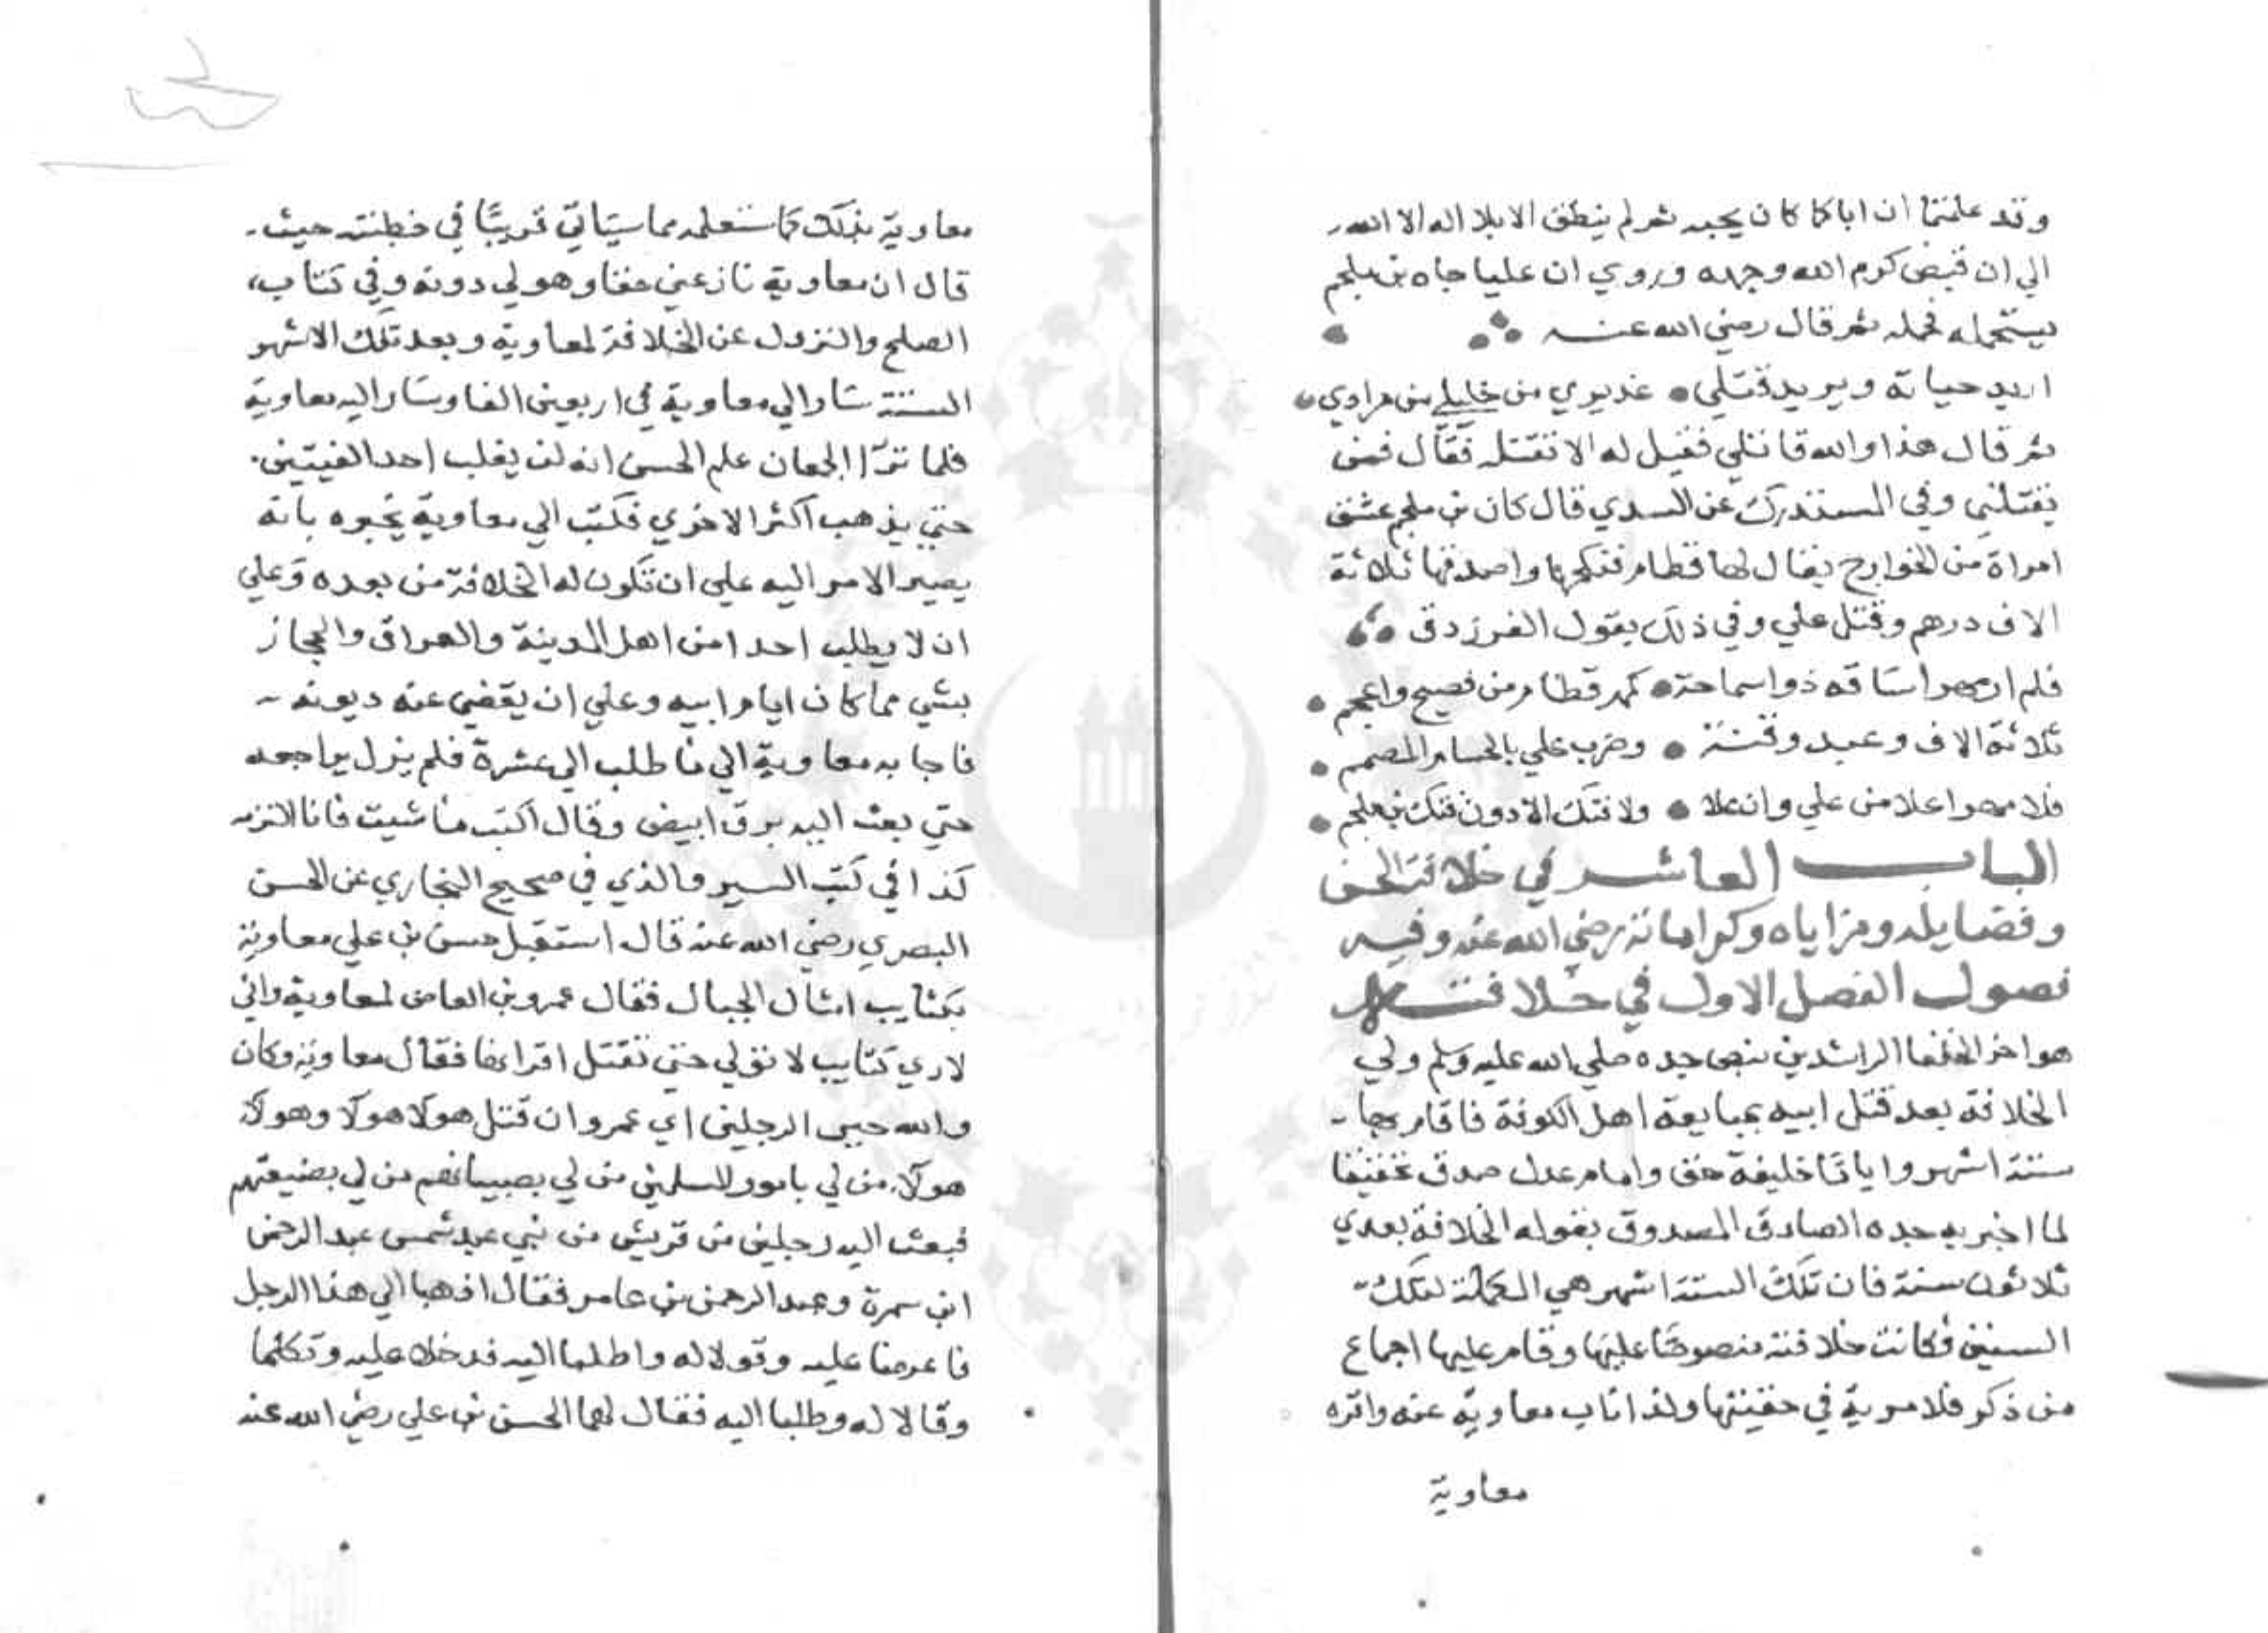 وقد علمتما ان اباكما كان يحبه ثم لم ينطق الا بلا اله الا الله
الي ان قبض كرم الله وجهه وروي ان عليا جاه بن ملجم
يستحمله فحمله ثم قال رضي الله عنه
اريد حياته ويريد قتلي عذيري من خليلي من مرادي
ثم قال هذا والله قاتلي فقيل له الا تقتله فقال فمن
يقتلني وفي المستدرك عن السدي قال كان بن ملجم عشق
امراة من الخوارج يقال لها قطام فنكحها واصدقها ثلاثة
الاف درهم وقتل علي وفي ذلك يقول الفرزدق
فلم ار مهرا ساقه ذوا سماحة كمهر قطام من فصيح واعجم
ثلاثة الاف وعبد وقينة وضرب علي بالحسام المصمم
فلا مهرا علا من علي وان علا ولا فتك الا دون فتك بن ملجم
الباب العاشر في خلافة الحسن
وفضايله ومزاياه وكراماته رضي الله عنه وفيه
فصول الفصل الاول في خلافته
هو اخر الخلفا الراشدين بنص جده صلي الله عليه وسلم ولي
الخلافة بعد قتل ابيه بمبايعة اهل الكوفة فاقام بها
ستة اشهر واياما خليفة حق وامام عدل صدق تحقيقا
لما اخبر به جده الصادق المصدوق بقوله الخلافة بعدي
ثلاثون سنة فان تلك الستة اشهر هي المكملة لتلك
السنين فكانت خلافته منصوصا عليها وقام عليها اجماع
من ذكر فلا مرية في حقيتها ولذا اناب معاوية عنه واقره
معاوية
معاوية بذلك كما ستعلمه مما سياتي قريبًا في خطبته حيث
قال ان معاوية نازعني حقا وهو لي دونه وفي كتاب
الصلح والنزول عن الخلافة لمعاوية وبعد تلك الاشهر
الستة سار الي معاوية في اربعين الفا وسار اليه معاوية
فلما تراا الجمعان علم الحسن انه لن يغلب احد الفيتين
حتي يذهب اكثر الاخري فكتب الي معاوية يخبره بانه
يصير الامر اليه علي ان تكون له الخلافة من بعده وعلي
ان لا يطلب احدا من اهل المدينة والعراق والحجاز
بشي مما كان ايام ابيه وعلي ان يقضي عنه ديونه
فاجابه معاوية الي ما طلب الي عشرة فلم يزل يراجعه
حتي بعث اليه برق ابيض وقال اكتب ما شيت فانا التزمه
كذا في كتب السير والذي في صحيح البخاري عن الحسن
البصري رضي الله عنه قال استقبل حسن بن علي معاوية
بكتايب امثال الجبال فقال عمرو بن العاص لمعاوية واني
لاري كتايب لا تولي حتي تقتل اقرانها فقال معاوية وكان
والله خير الرجلين اي عمرو ان قتل هولا هولا وهولا
هولا من لي بامور المسلمين من لي بصبيانهم من لي بضيعتهم
فبعث اليه رجلين من قريش من بني عبد شمس عبد الرحمن
ابن سمرة وعبد الرحمن بن عامر فقال اذهبا الي هذا الرجل
فاعرضا عليه وقولا له واطلبا اليه فدخلا عليه وتكلما
وقالا له وطلبا اليه فقال لهما الحسن بن علي رضي الله عنه